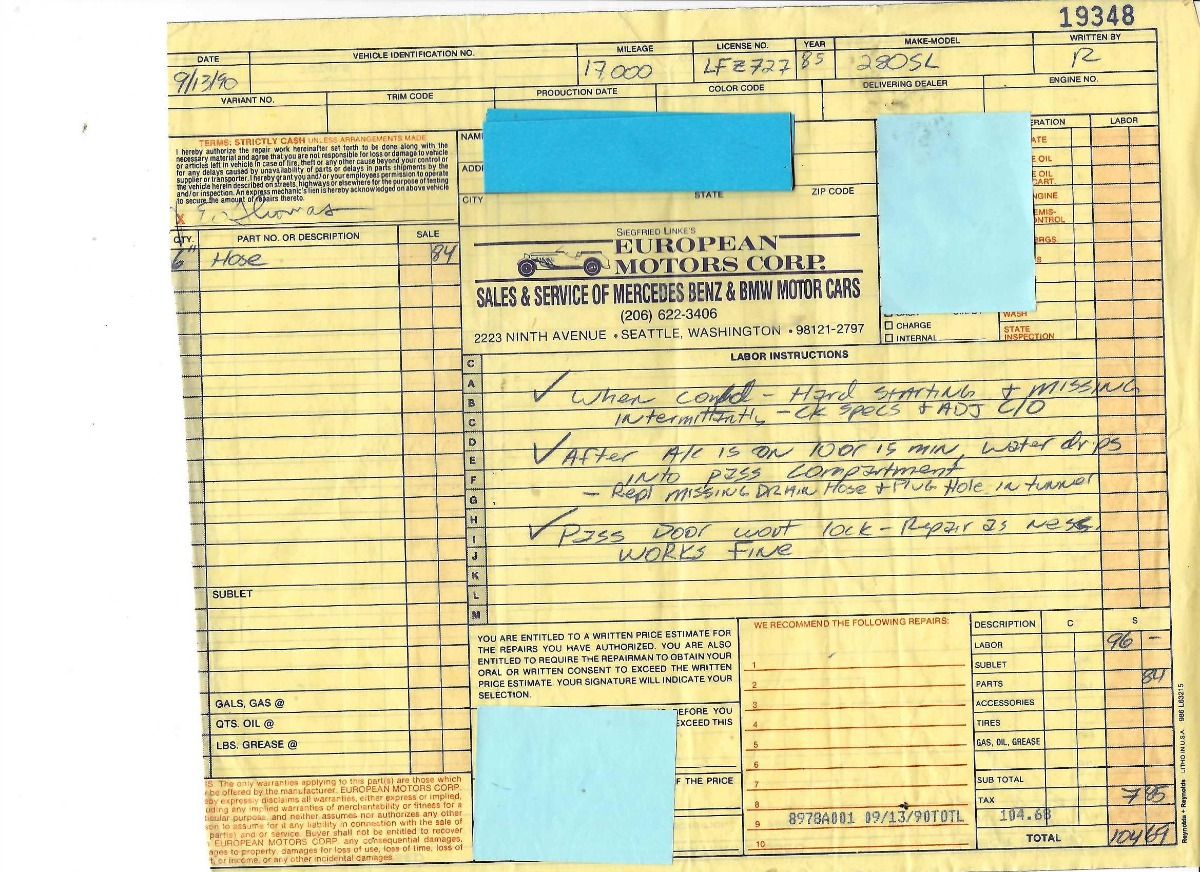 19348
DATE VEHICLE IDENTIFICATION NO. MILEAGE LICENSE NO. YEAR MAKE-MODEL WRITTEN BY
9/13/90 17000 LFZ727 85 280SL R
VARIANT NO. TRIM CODE PRODUCTION DATE COLOR CODE DELIVERING DEALER ENGINE NO.
TERMS: STRICTLY CASH UNLESS ARRANGEMENTS MADE
I hereby authorize the repair work hereinafter set forth to be done along with the
necessary material and agree that you are not responsible for loss or damage to vehicle
or articles left in vehicle in case of fire, theft or any other cause beyond your control or
for any delays caused by unavailability of parts or delays in parts shipments by the
supplier or transporter. I hereby grant you and/or your employees permission to operate
the vehicle herein described on streets, highways or elsewhere for the purpose of testing
and/or inspection. An express mechanic's lien is hereby acknowledged on above vehicle
to secure the amount of repairs thereto.
X Thomas
NAM
ADD
CITY STATE ZIP CODE
ERATION LABOR
ATE
E OIL
E OIL
CART.
NGINE
EMIS-
ONTROL
BRGS
S
WASH
STATE
INSPECTION
CHARGE
INTERNAL
QTY. PART NO. OR DESCRIPTION SALE
6" Hose 84
SUBLET
GALS, GAS @
QTS. OIL @
LBS. GREASE @
SIEGFRIED LINKE'S
EUROPEAN
MOTORS CORP.
SALES & SERVICE OF MERCEDES BENZ & BMW MOTOR CARS
(206) 622-3406
2223 NINTH AVENUE • SEATTLE, WASHINGTON • 98121-2797
LABOR INSTRUCTIONS
C
A
B
C
D
E
F
G
H
I
J
K
L
M
✓ When cold - Hard STARTING & MISSING
INTERMITTANTLY - CK SPECS & ADJ C/O
✓ AFTER A/C IS ON 10 or 15 MIN, WATER drips
INTO PASS COMPARTMENT
- Repl MISSING DRAIN Hose & PLUG Hole in tunnel
✓ PASS DOOR wont lock - Repair as ness.
WORKS FINE
YOU ARE ENTITLED TO A WRITTEN PRICE ESTIMATE FOR
THE REPAIRS YOU HAVE AUTHORIZED. YOU ARE ALSO
ENTITLED TO REQUIRE THE REPAIRMAN TO OBTAIN YOUR
ORAL OR WRITTEN CONSENT TO EXCEED THE WRITTEN
PRICE ESTIMATE. YOUR SIGNATURE WILL INDICATE YOUR
SELECTION.
EFORE YOU
EXCEED THIS
F THE PRICE
WE RECOMMEND THE FOLLOWING REPAIRS:
1
2
3
4
5
6
7
8
9 8978A001 09/13/90TOTL 104.68
10
DESCRIPTION C S
LABOR 96 –
SUBLET
PARTS 84
ACCESSORIES
TIRES
GAS, OIL, GREASE
SUB TOTAL
TAX 7 85
TOTAL 104 69
S. The only warranties applying to this part(s) are those which
be offered by the manufacturer. EUROPEAN MOTORS CORP.
eby expressly disclaims all warranties, either express or implied,
uding any implied warranties of merchantability or fitness for a
ticular purpose, and neither assumes nor authorizes any other
son to assume for it any liability in connection with the sale of
part(s) and or service. Buyer shall not be entitled to recover
EUROPEAN MOTORS CORP. any consequential damages,
ages to property, damages for loss of use, loss of time, loss of
t, or income, or any other incidental damages.
Reynolds + Reynolds LITHO IN U.S.A. 986 L63215